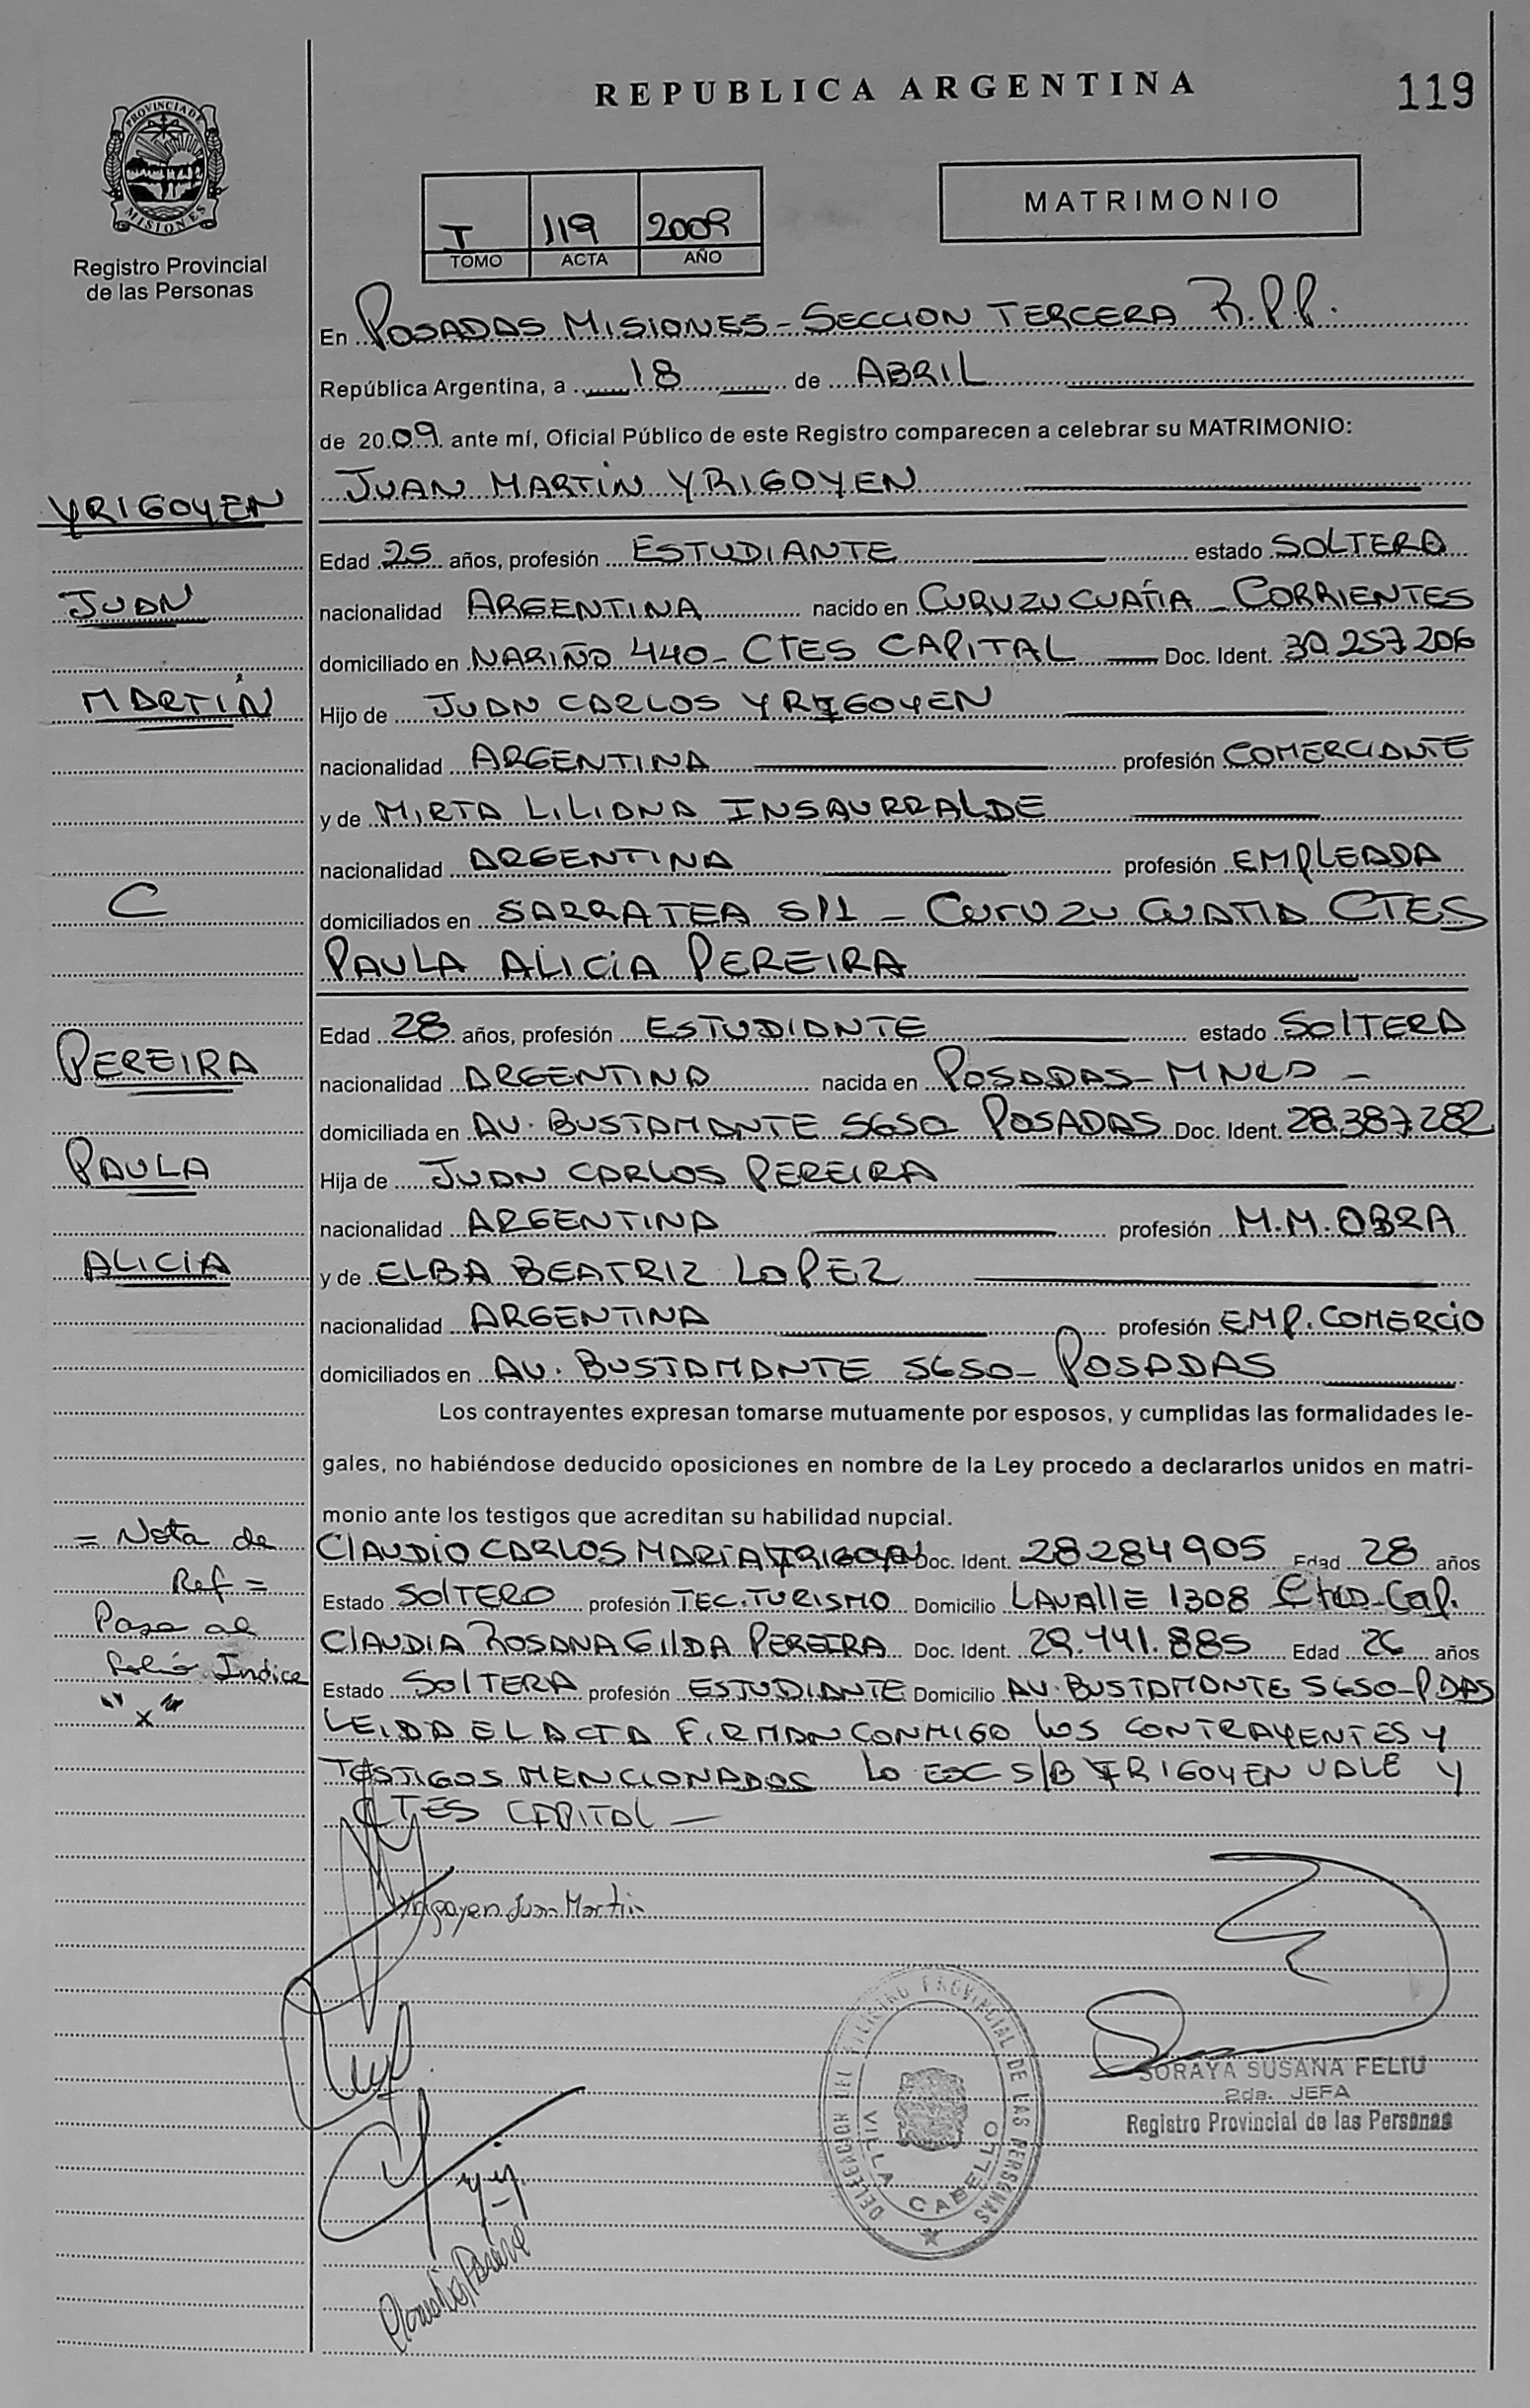 REPUBLICA ARGENTINA
119
PROVINCIA DE MISIONES
Registro Provincial
de las Personas
I 119 2009
TOMO ACTA AÑO
MATRIMONIO
En POSADAS MISIONES - SECCION TERCERA R.P.P.
República Argentina, a 18 de ABRIL
de 2009 ante mí, Oficial Público de este Registro comparecen a celebrar su MATRIMONIO:
JUAN MARTIN YRIGOYEN
YRIGOYEN
Edad 25 años, profesión ESTUDIANTE estado SOLTERO
JUAN
nacionalidad ARGENTINA nacido en CURUZU CUATIA - CORRIENTES
domiciliado en NARIÑO 440 - CTES CAPITAL Doc. Ident. 30.257.206
MARTIN
Hijo de JUAN CARLOS YRIGOYEN
nacionalidad ARGENTINA profesión COMERCIANTE
y de MIRTA LILIANA INSAURRALDE
nacionalidad ARGENTINA profesión EMPLEADA
C
domiciliados en SARRATEA 511 - CURUZU CUATIA CTES
PAULA ALICIA PEREIRA
Edad 28 años, profesión ESTUDIANTE estado SOLTERA
PEREIRA
nacionalidad ARGENTINA nacida en POSADAS - MNES -
domiciliada en AV. BUSTAMANTE 5650 POSADAS Doc. Ident. 28.387.282
PAULA
Hija de JUAN CARLOS PEREIRA
nacionalidad ARGENTINA profesión M.M.OBRA
ALICIA
y de ELBA BEATRIZ LOPEZ
nacionalidad ARGENTINA profesión EMP. COMERCIO
domiciliados en AV. BUSTAMANTE 5650 - POSADAS
Los contrayentes expresan tomarse mutuamente por esposos, y cumplidas las formalidades le-
gales, no habiéndose deducido oposiciones en nombre de la Ley procedo a declararlos unidos en matri-
monio ante los testigos que acreditan su habilidad nupcial.
= Nota de
Ref =
Pasa al
folio Indice
"x"
CLAUDIO CARLOS MARIA YRIGOYEN Doc. Ident. 28284905 Edad 28 años
Estado SOLTERO profesión TEC. TURISMO Domicilio LAVALLE 1308 Ctes - Cap.
CLAUDIA ROSANA GILDA PEREIRA Doc. Ident. 29.441.885 Edad 26 años
Estado SOLTERA profesión ESTUDIANTE Domicilio AV. BUSTAMANTE 5650 - PDAS
LEIDA EL ACTA FIRMAN CONMIGO LOS CONTRAYENTES Y
TESTIGOS MENCIONADOS LO ESC S/B YRIGOYEN VALE Y
CTES CAPITAL -
Yrigoyen Juan Martin
DELEGACION DEL REGISTRO PROVINCIAL DE LAS PERSONAS
VILLA CABELLO
SORAYA SUSANA FELTU
2da. JEFA
Registro Provincial de las Personas
Claudia Pereira